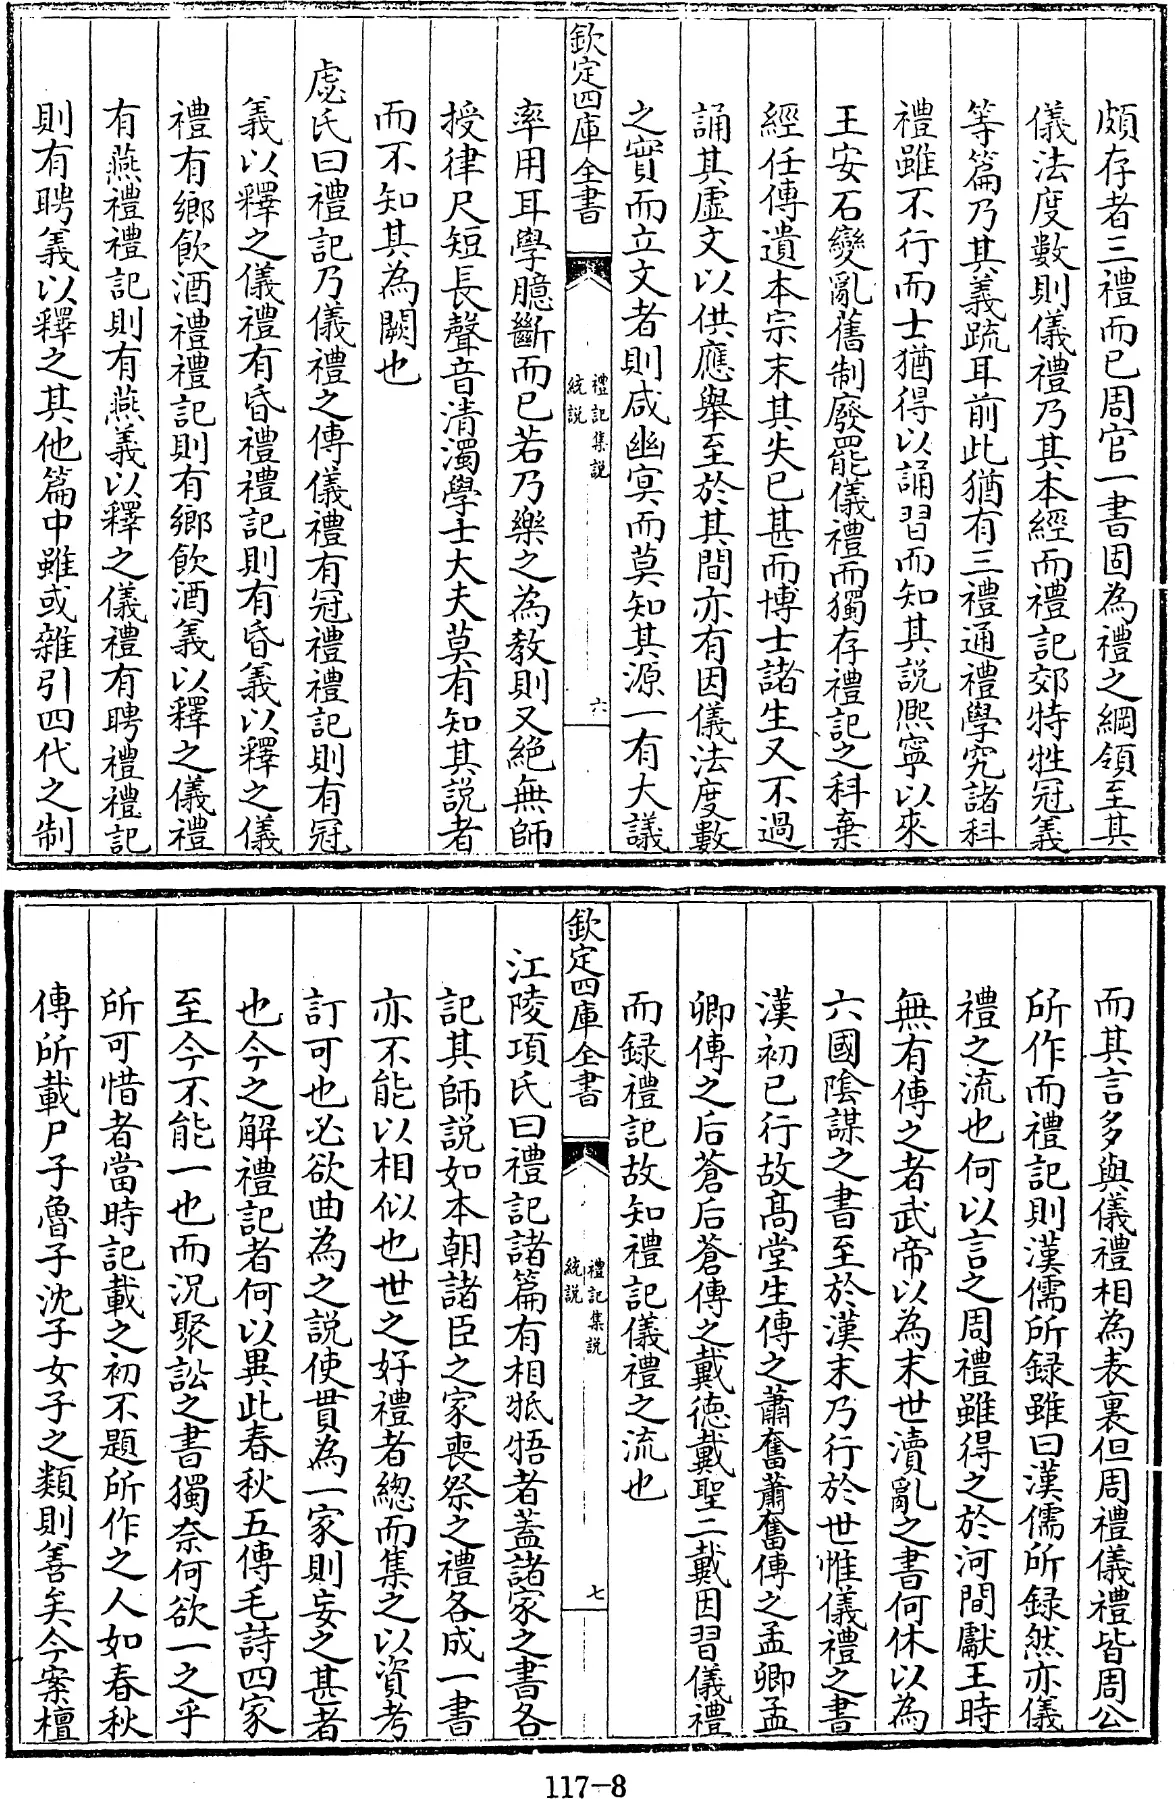 頗存者三禮而已周官一書固為禮之綱領至其
儀法度數則儀禮乃其本經而禮記郊特牲冠義
等篇乃其義疏耳前此猶有三禮通禮學究諸科
禮雖不行而士猶得以誦習而知其說熈寧以來
王安石變亂舊制廢罷儀禮而獨存禮記之科棄
經任傳遺本宗末其失已甚而博士諸生又不過
誦其虛文以供應舉至於其間亦有因儀法度數
之實而立文者則咸幽冥而莫知其源一有大議
欽定四庫全書
禮記集説
統説
六
率用耳學臆斷而已若乃樂之為教則又絶無師
授律尺短長聲音清濁學士大夫莫有知其説者
而不知其為闕也
虙氏曰禮記乃儀禮之傳儀禮有冠禮禮記則有冠
義以釋之儀禮有昏禮禮記則有昏義以釋之儀
禮有鄉飲酒禮禮記則有鄉飲酒義以釋之儀禮
有燕禮禮記則有燕義以釋之儀禮有聘禮禮記
則有聘義以釋之其他篇中雖或雜引四代之制
而其言多與儀禮相為表裏但周禮儀禮皆周公
所作而禮記則漢儒所録雖曰漢儒所録然亦儀
禮之流也何以言之周禮雖得之於河間獻王時
無有傳之者武帝以為末世瀆亂之書何休以為
六國陰謀之書至於漢末乃行於世惟儀禮之書
漢初已行故高堂生傳之蕭奮蕭奮傳之孟卿孟
卿傳之后蒼后蒼傳之戴徳戴聖二戴因習儀禮
而録禮記故知禮記儀禮之流也
欽定四庫全書
禮記集説
統説
七
江陵項氏曰禮記諸篇有相牴牾者蓋諸家之書各
記其師説如本朝諸臣之家喪祭之禮各成一書
亦不能以相似也世之好禮者總而集之以資考
訂可也必欲曲為之説使貫為一家則妄之甚者
也今之解禮記者何以異此春秋五傳毛詩四家
至今不能一也而況聚訟之書獨奈何欲一之乎
所可惜者當時記載之初不題所作之人如春秋
傳所載尸子魯子沈子女子之類則善矣今案檀
117-8